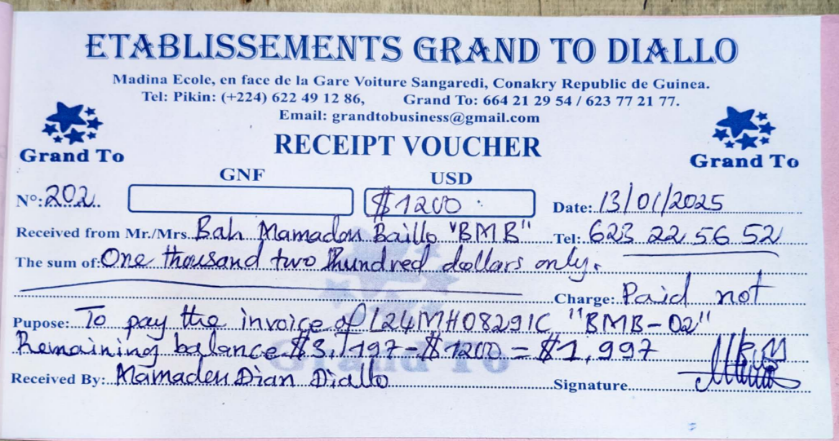 ETABLISSEMENTS GRAND TO DIALLO
Madina Ecole, en face de la Gare Voiture Sangaredi, Conakry Republic de Guinea.
Tel: Pikin: (+224) 622 49 12 86, Grand To: 664 21 29 54 / 623 77 21 77.
Email: grandtobusiness@gmail.com
Grand To RECEIPT VOUCHER Grand To
GNF USD
N°: 202 $1200 Date: 13/01/2025
Received from Mr./Mrs. Bah Mamadou Baillo "BMB" Tel: 623 22 56 52
The sum of: One thousand two hundred dollars only.
Charge: Paid not
Pupose: To pay the invoice of L24MH0829IC "BMB-02"
Remaining balance $3,197 - $1200 = $1,997
Received By: Mamadou Dian Diallo Signature